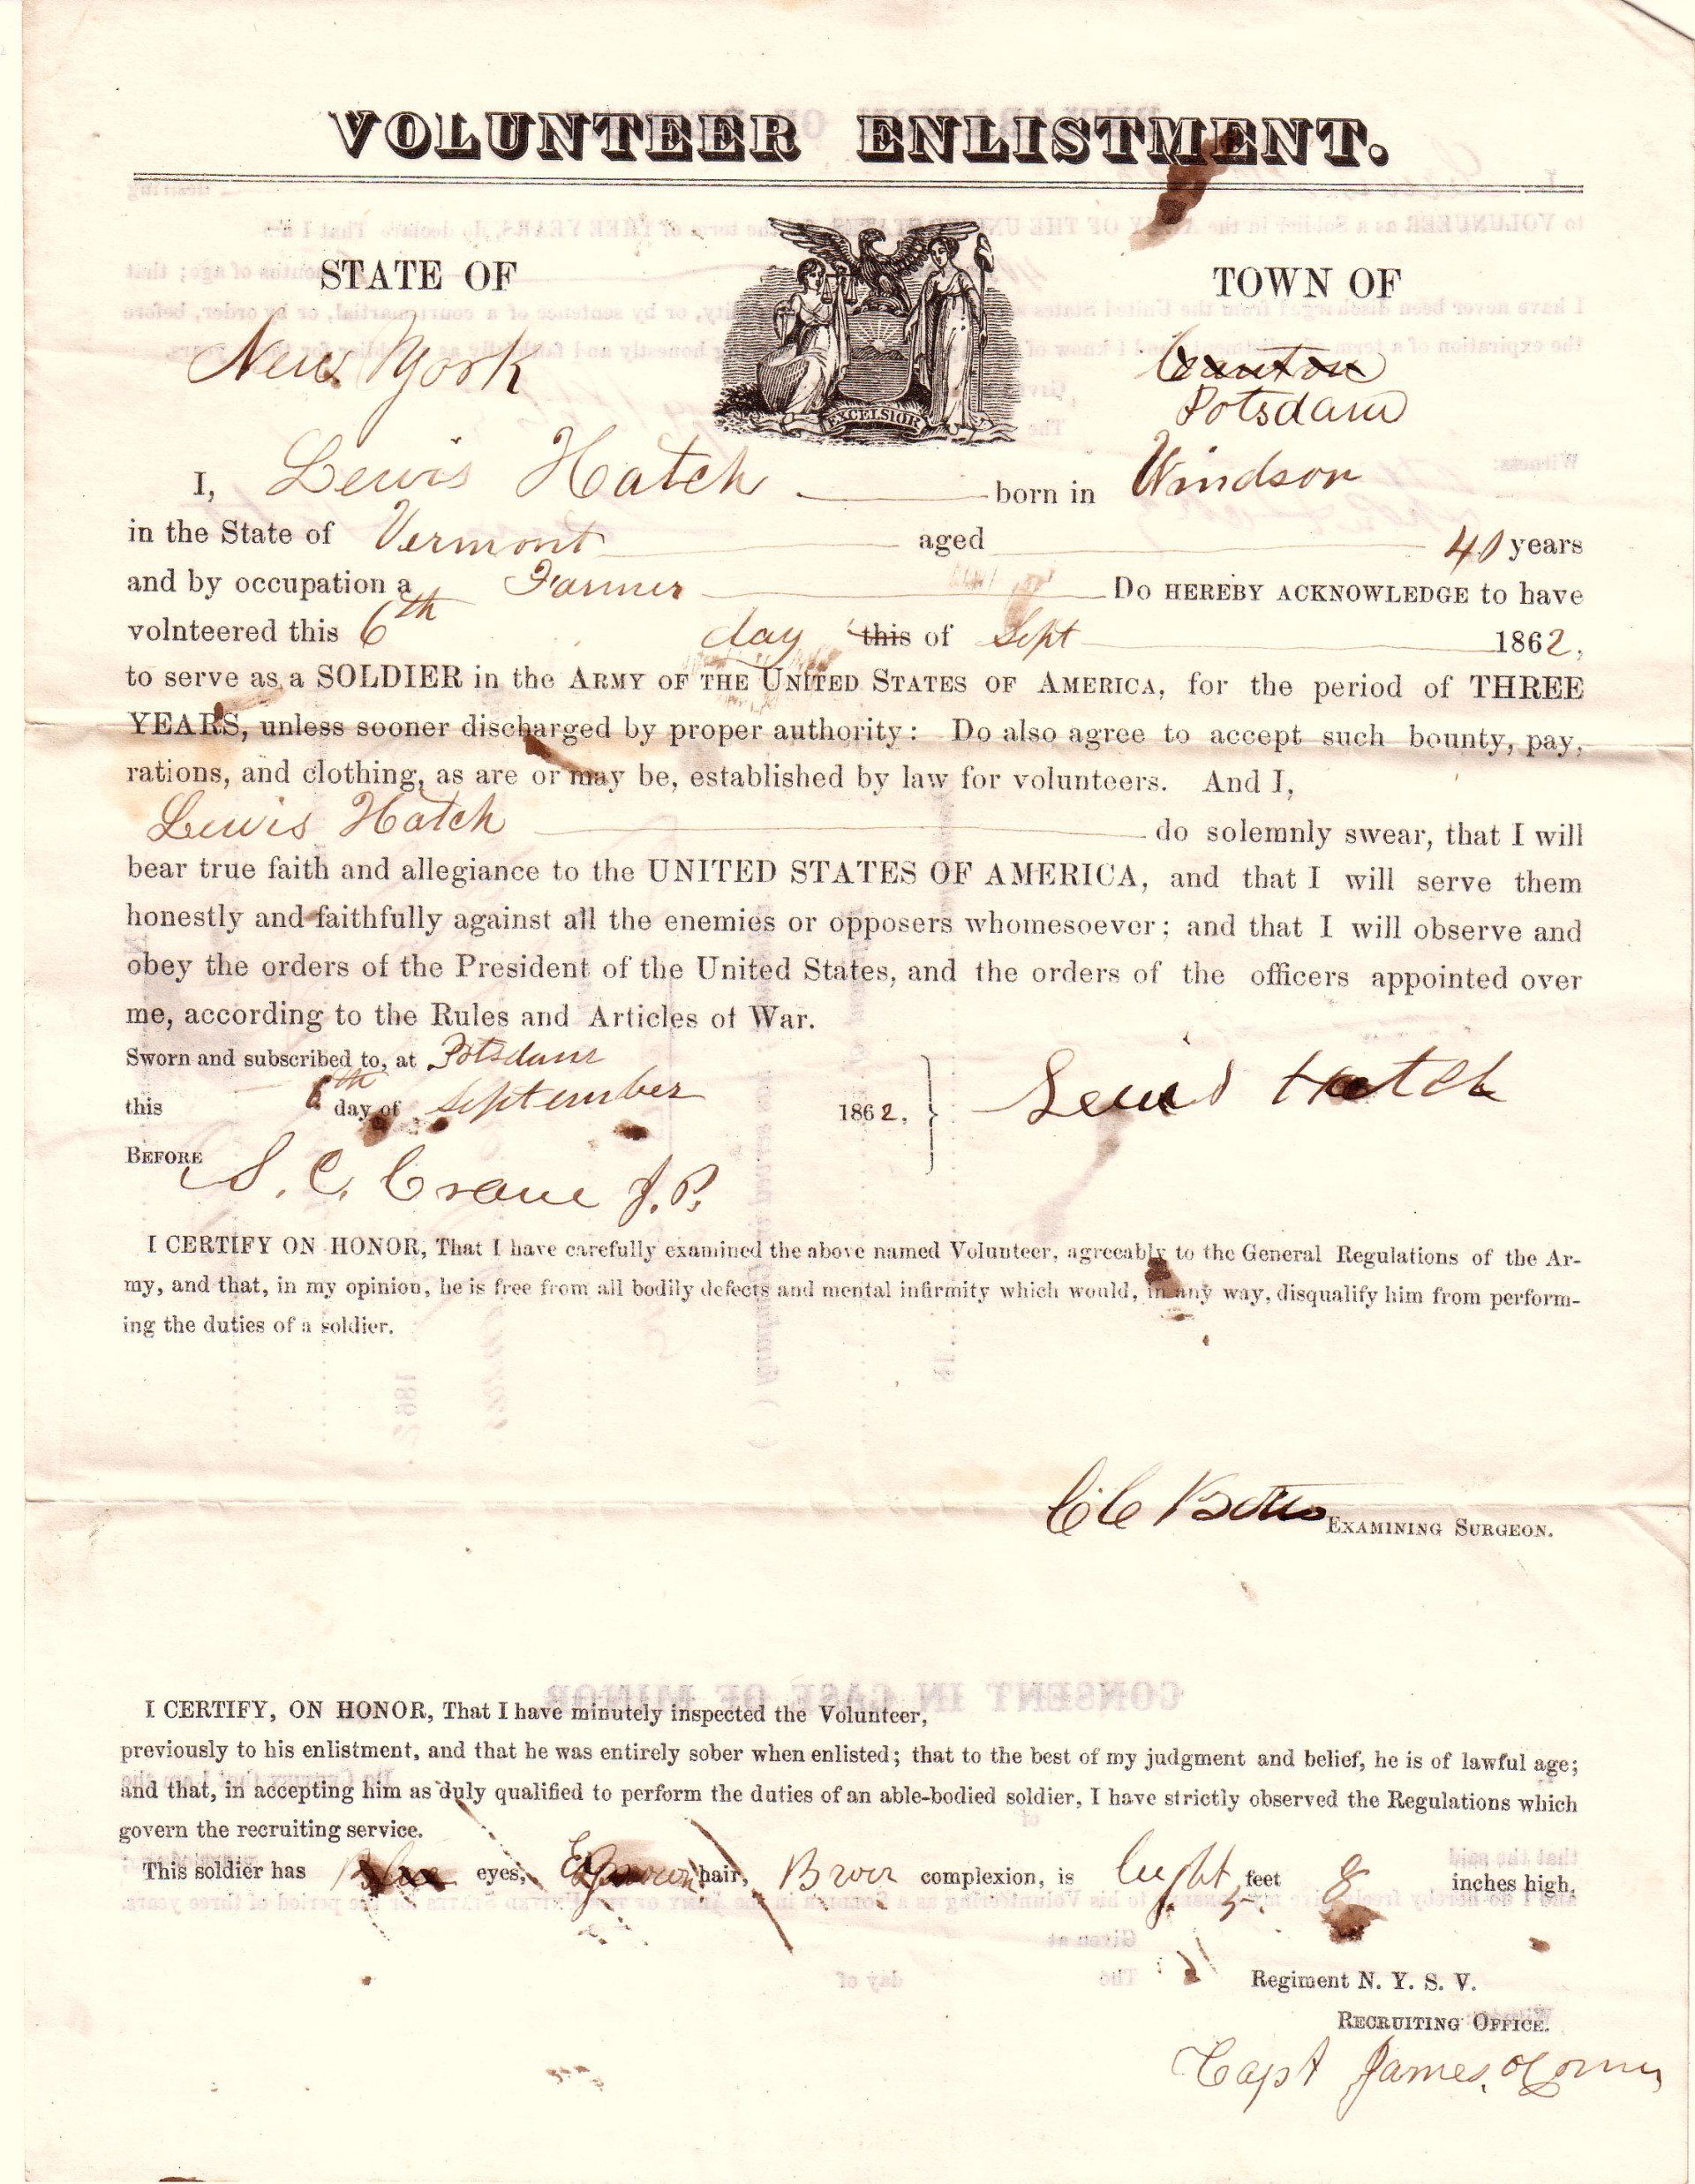 VOLUNTEER ENLISTMENT.
STATE OF
TOWN OF
New York
EXCELSIOR
Canton
Potsdam
I, Lewis Hatch born in Windsor
in the State of Vermont aged 40 years
and by occupation a Farmer Do HEREBY ACKNOWLEDGE to have
volnteered this 6th day this of Sept 1862,
to serve as a SOLDIER in the ARMY OF THE UNITED STATES OF AMERICA, for the period of THREE
YEARS, unless sooner discharged by proper authority: Do also agree to accept such bounty, pay,
rations, and clothing, as are or may be, established by law for volunteers. And I,
Lewis Hatch do solemnly swear, that I will
bear true faith and allegiance to the UNITED STATES OF AMERICA, and that I will serve them
honestly and faithfully against all the enemies or opposers whomesoever; and that I will observe and
obey the orders of the President of the United States, and the orders of the officers appointed over
me, according to the Rules and Articles of War.
Sworn and subscribed to, at Potsdam
this 6th day of September 1862,
Lewis Hatch
BEFORE S. C. Crane J. P.
I CERTIFY ON HONOR, That I have carefully examined the above named Volunteer, agreeably to the General Regulations of the Ar-
my, and that, in my opinion, he is free from all bodily defects and mental infirmity which would, in any way, disqualify him from perform-
ing the duties of a soldier.
EXAMINING SURGEON.
CONSENT IN CASE OF MINOR
I CERTIFY, ON HONOR, That I have minutely inspected the Volunteer,
previously to his enlistment, and that he was entirely sober when enlisted; that to the best of my judgment and belief, he is of lawful age;
and that, in accepting him as duly qualified to perform the duties of an able-bodied soldier, I have strictly observed the Regulations which
govern the recruiting service.
This soldier has Blue eyes, hair, complexion, is light 5 feet 8 inches high,
Regiment N. Y. S. V.
RECRUITING OFFICE.
Capt James